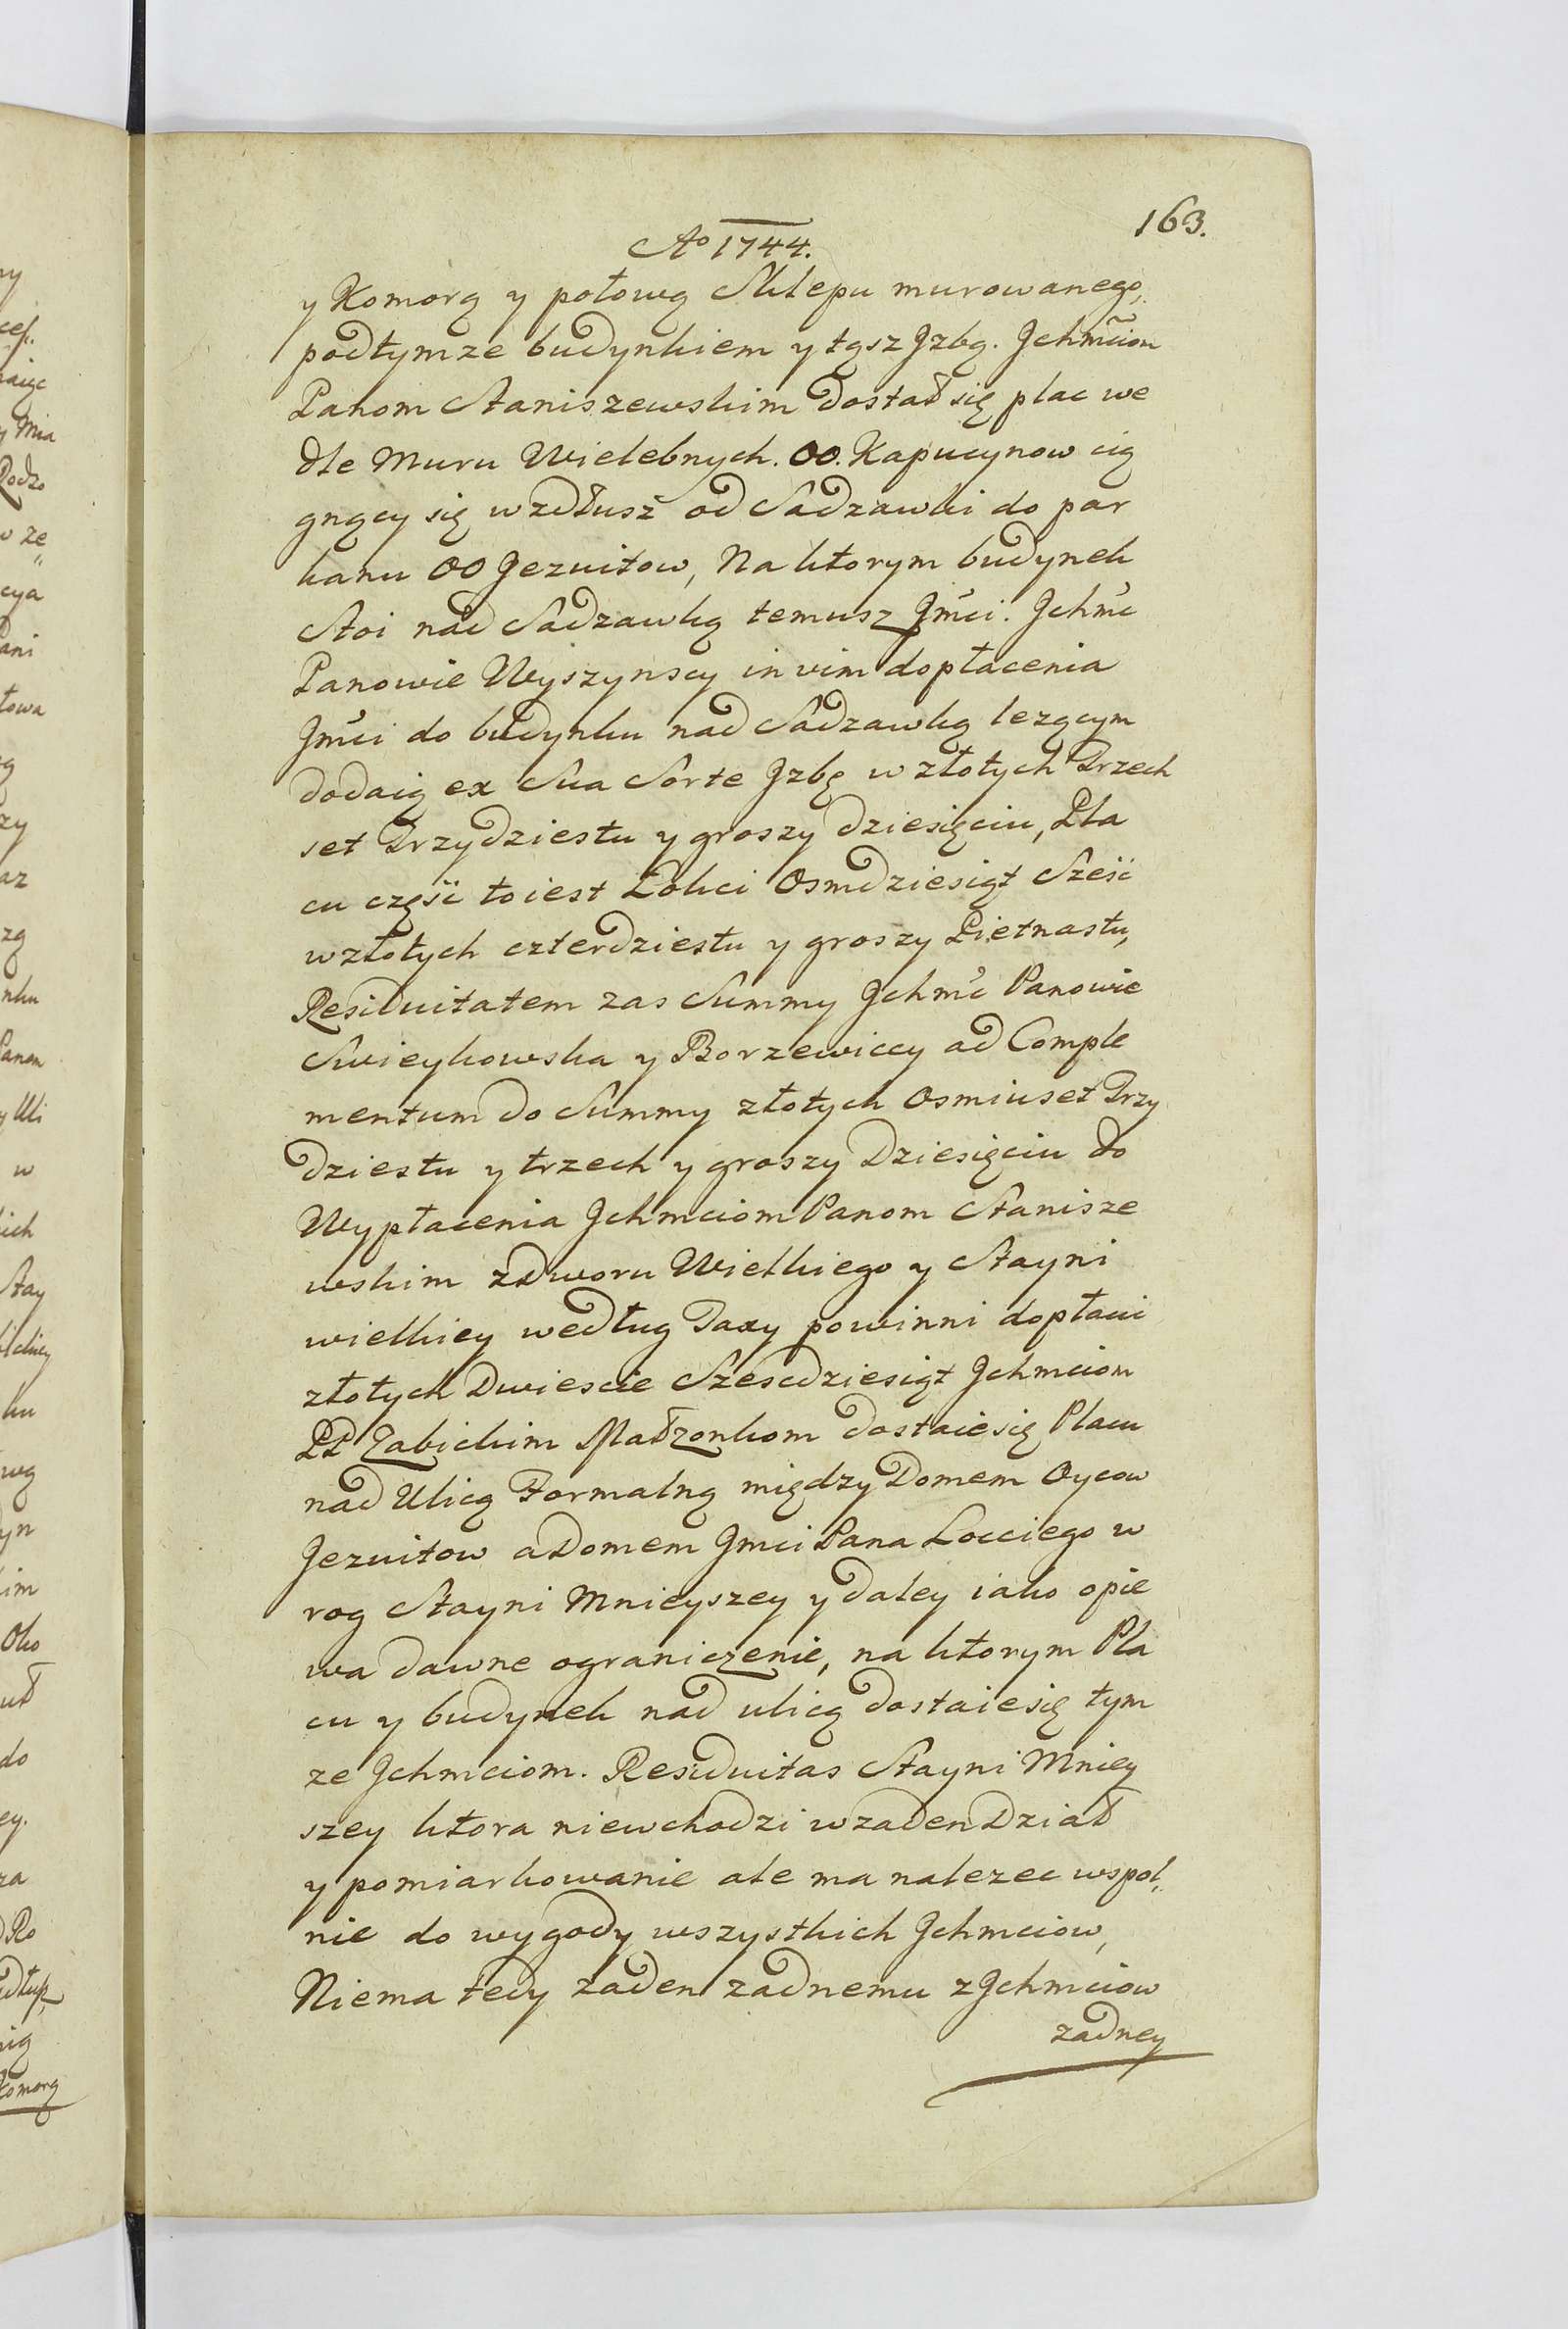 163.
Ao 1744.
y Komorą y połową Sklepu murowanego,
podtymze budynkiem y tąsz Jzbą. Jchmciom
Panom Staniszewskim dostał się plac we
dle Muru Wielebnych. OO. Kapucynow cią
gnący się wzdłusz od Sadzawki do par
kanu OO Jezuitow, Na ktorym budynek
Stoi nad Sadzawką temusz Jmci. Jchmc
Panowie Wyszynscy in vim dopłacenia
Jmci do budynku nad Sadzawką lezącym
dodaią ex Sua Sorte Jzbę w złotych Trzech
set Trzydziestu y groszy dziesięciu, Pla
cu część toiest Łokci Osmdziesiąt Sześć
wzłotych czterdziestu y groszy Pietnastu,
Residuitatem zas Summy Jchmc Panowie
Swieykowska y Borzewiccy ad Comple
mentum do Summy złotych Osmiuset Trzy
dziestu y trzech y groszy Dziesięciu do
Wypłacenia Jchmciom Panom Stanisze
wskim zDworu Wielkiego y Stayni
wielkiey według Taxy powinni dopłacić
złotych Dwiescie Szescdziesiąt Jchmciom
PP Zabickim Małzonkom dostaie się Placu
nad Ulicą Formalną między Domem Oycow
Jezuitow a Domem Jmci Pana Locciego w
rog Stayni Mnieyszey y daley iako opie
wa dawne ograniczenie, na ktorym Pla
cu y budynek nad ulicą dostaie się tym
ze Jchmciom. Residuitas Stayni Mniey
szey ktora niewchodzi wzaden Dział
y pomiarkowanie ale ma nalezec wspol„
nie do wygody wszystkich Jchmciow,
Niema tedy zaden zadnemu zJchmciow
zadney